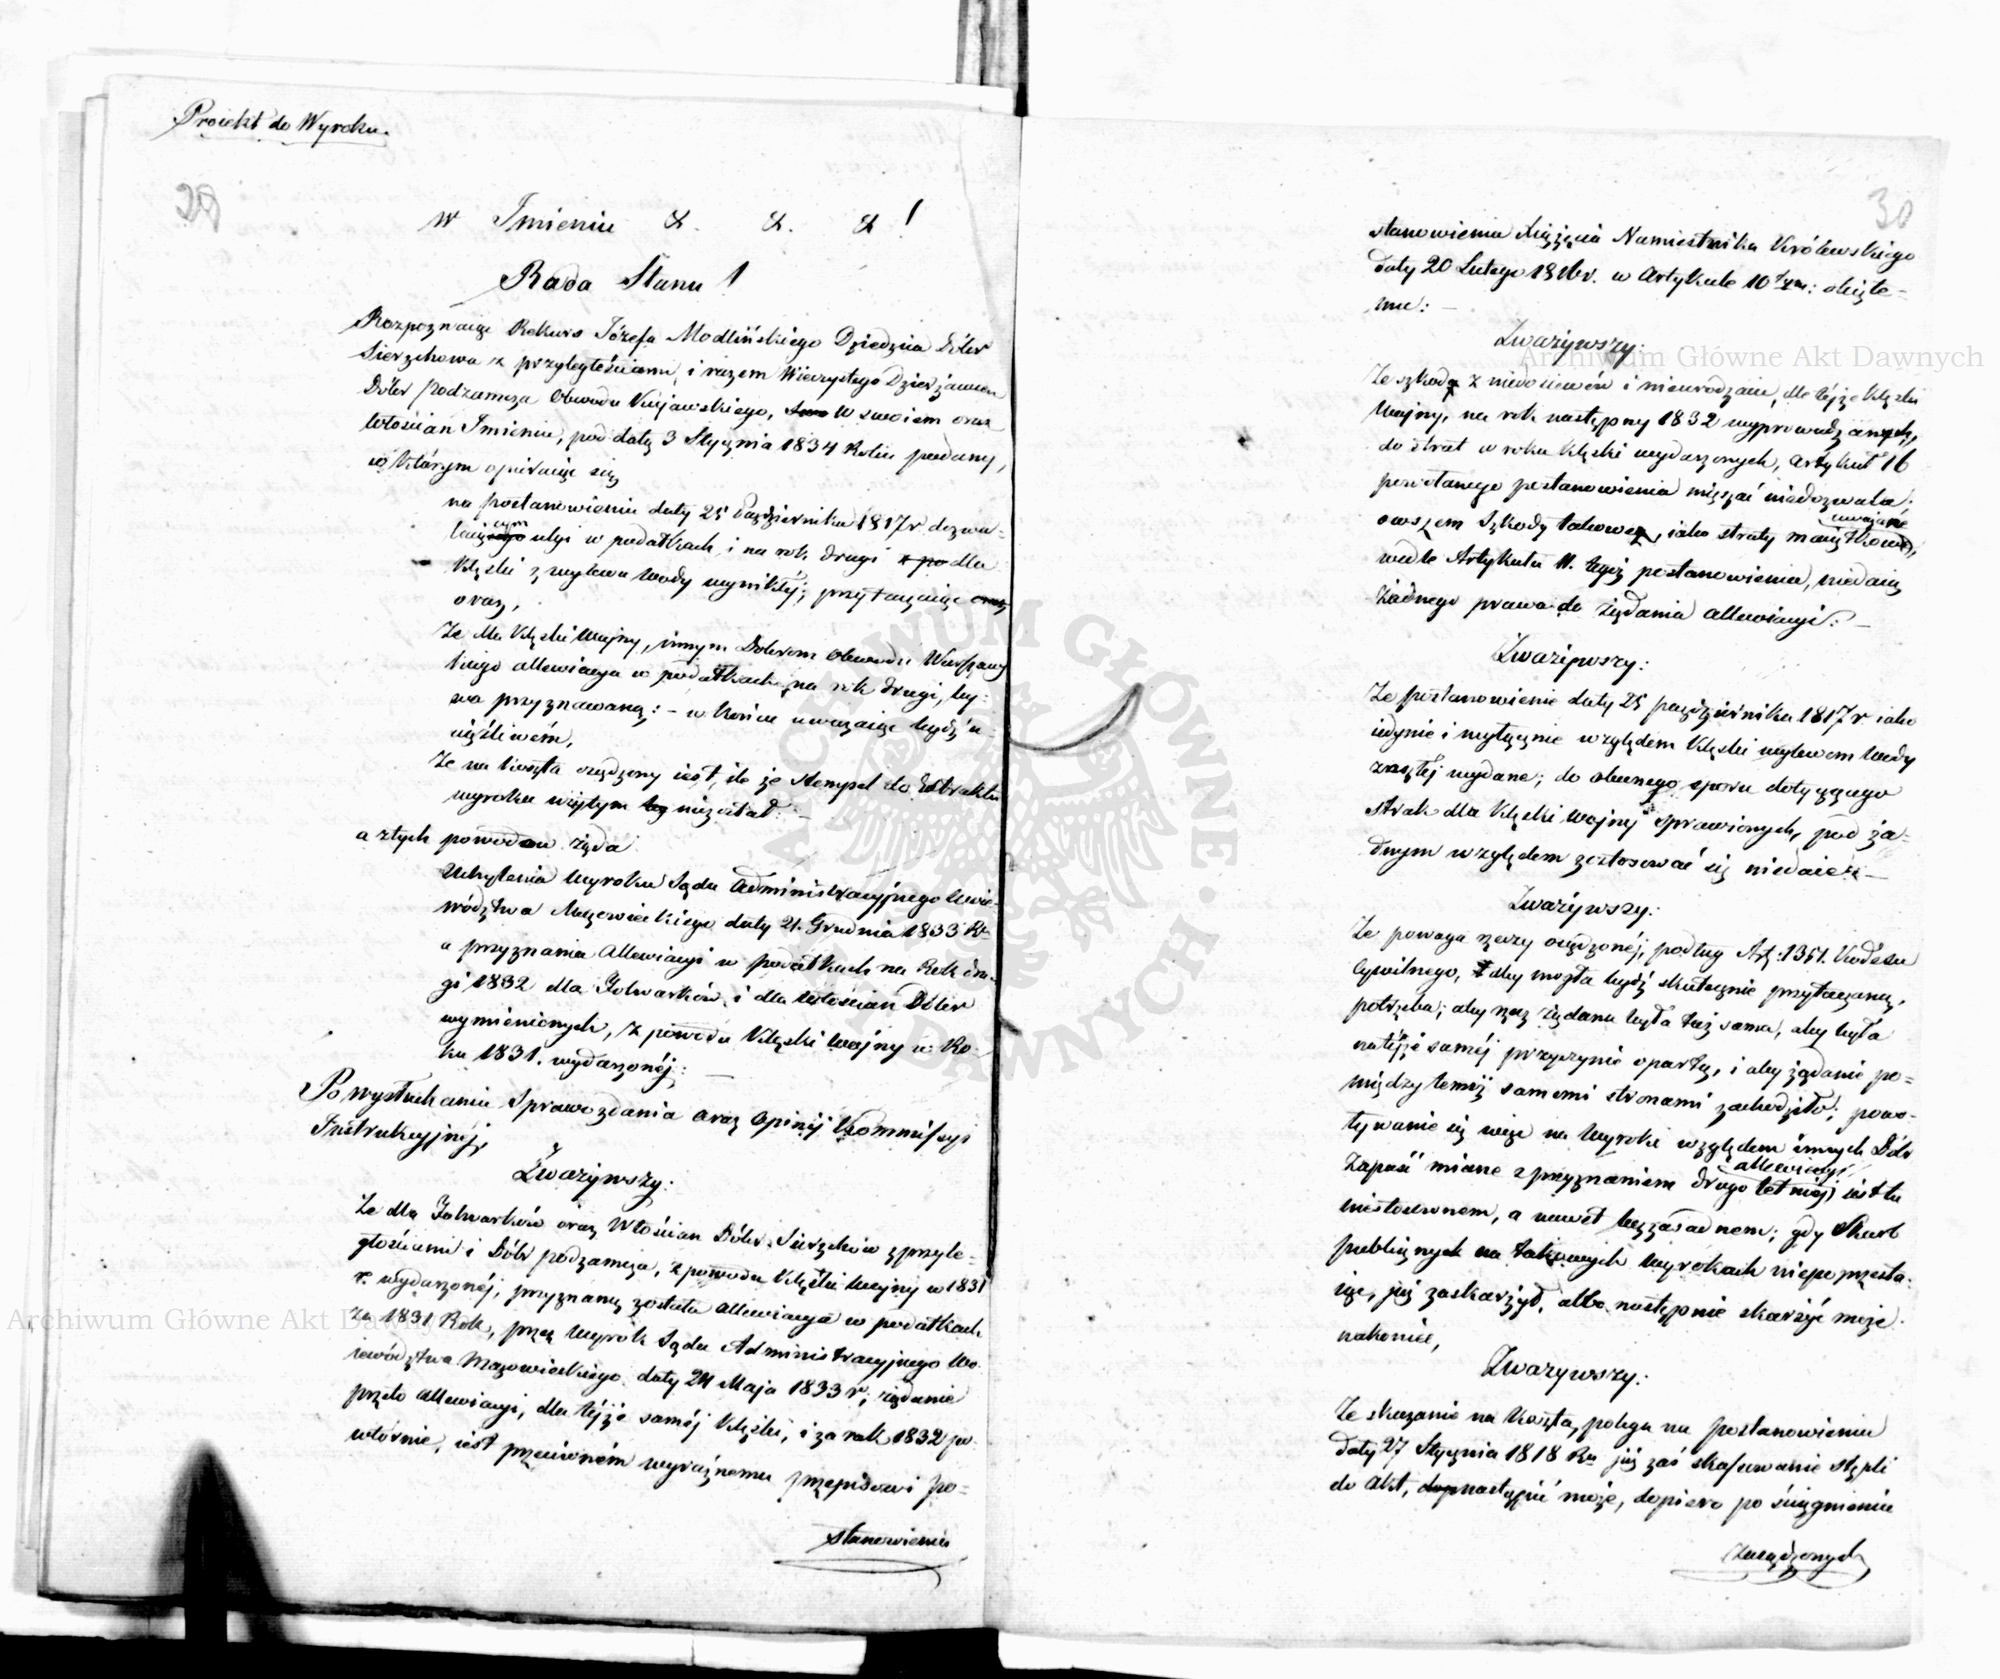 Proiekt do Wyroku.
29
w Imieniu &. &. &!
Rada Stanu!
Rozpoznaiąc Rekurs Józefa Modlińskiego Dziedzica Dóbr
Sierzchowa z przyległościami, i razem Wieczystego Dzierżawcy
Dóbr Podzamcza Obwodu Kuiawskiego, w swoiem oraz
Włościan Imieniu, pod datą 3 Stycznia 1834 Roku podany,
w którym opieraiąc się
na postanowieniu daty 25 Października 1817 r dozwa-
laiącym ulgi w podatkach i na rok drugi dla
klęski z wylewu wody wynikłéj; przytaczaiąc
oraz,
Że dla klęski woyny, innym Dobrom Obwodu Warszaw
skiego allewiacya w podatkach na rok drugi, by-
wa przyznawaną: – w końcu uważaiąc bydź u-
ciążliwém,
Że na koszta osądzony iest, ile że stempel do Extraktu
wyroku użytym niezostał: –
a z tych powodów żąda
Uchylenia wyroku Sądu Administracyjnego Woie-
wództwa Mazowieckiego daty 21. Grudnia 1833 Rku
a przyznania allewiacyi w podatkach na Rok dru-
gi 1832 dla Folwarków i dla Włościan Dóbr
wymienionych, z powodu klęski woyny w Ro-
ku 1831. wydarzonéj: –
Po wysłuchaniu Sprawozdania oraz opinij Kommissyi
Instrukcyjnéj,
Zważywszy:
Że dla Folwarków oraz Włościan Dóbr Sierzchów z przyle-
głościami i Dóbr podzamcza, z powodu klęski woyny w 1831
r. wydarzonéj, przyznaną została allewiacya w podatkach
za 1831 Rok, przez wyrok Sądu Administracyjnego Wo-
iewództwa Mazowieckiego daty 24 Maja 1833 r; żądanie
przeto allewiacyi, dla téjże saméj klęski, i za rok 1832 po-
wtórnie, iest przeciwném wyraźnemu przepisowi po-
stanowienia
30
stanowienia Xiążęcia Namiestnika Królewskiego
daty 20 Lutego 1816 r. w Artykule 10tym: obięte-
mu: –
Zważywszy:
Że szkody z niedosiewów i nieurodzaiu, dla téjże klęski
woyny, na rok następny 1832 wyprowadzanych,
do strat w roku klęski wydarzonych, artykuł 16
powołanego postanowienia mięszać niedozwala;
owszem szkody takowe, iako straty maiątkowe uważane,
wedle Artykułu 11. tegoż postanowienia, niedaią
żadnego prawa do żądania allewiacyi: –
Zważywszy:
Że postanowienie daty 25 października 1817 r iako
iedynie i wyłącznie względem klęski wylewem wody
zaszłéj wydane; do obecnego sporu dotyczącego
strat dla klęski woyny sprawionych, pod ża-
dnym względem zastosować się niedaie: –
Zważywszy:
Że powaga rzeczy osądzonéj, podług Art: 1351. Kodexu
Cywilnego, aby mogła bydź skutecznie przytaczaną,
potrzeba; aby rzecz żądana była taż sama, aby była
na téjże saméj przyczynie opartą, i aby żądanie po-
między temiż samemi stronami zachodziło; powo-
ływanie się więc na wyroki względem innych Dóbr
zapaść miane z przyznaniem drugoletniéj allewiacyi iest tu
niestosownem, a nawet bezzasadnem; gdy Skarb
publiczny na takowych wyrokach niepoprzesta-
iąc, już zaskarżył, albo następnie skarżyć może.
nakoniec,
Zważywszy:
Że skazanie na koszta, polega na postanowieniu
daty 27 Stycznia 1818 Ru już zaś skassowanie stępli
do akt, nastąpić może, dopiero po ściągnieniu
zasądzonych
Archiwum Główne Akt Dawnych
Archiwum Główne Akt Dawnych
ARCHIWUM GŁÓWNE · AKT DAWNYCH ·